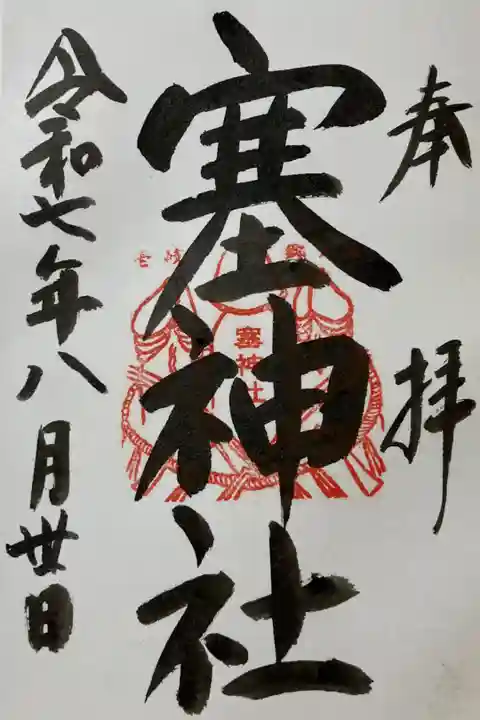 奉拝
塞神社
塞神社
令和七年八月丗日